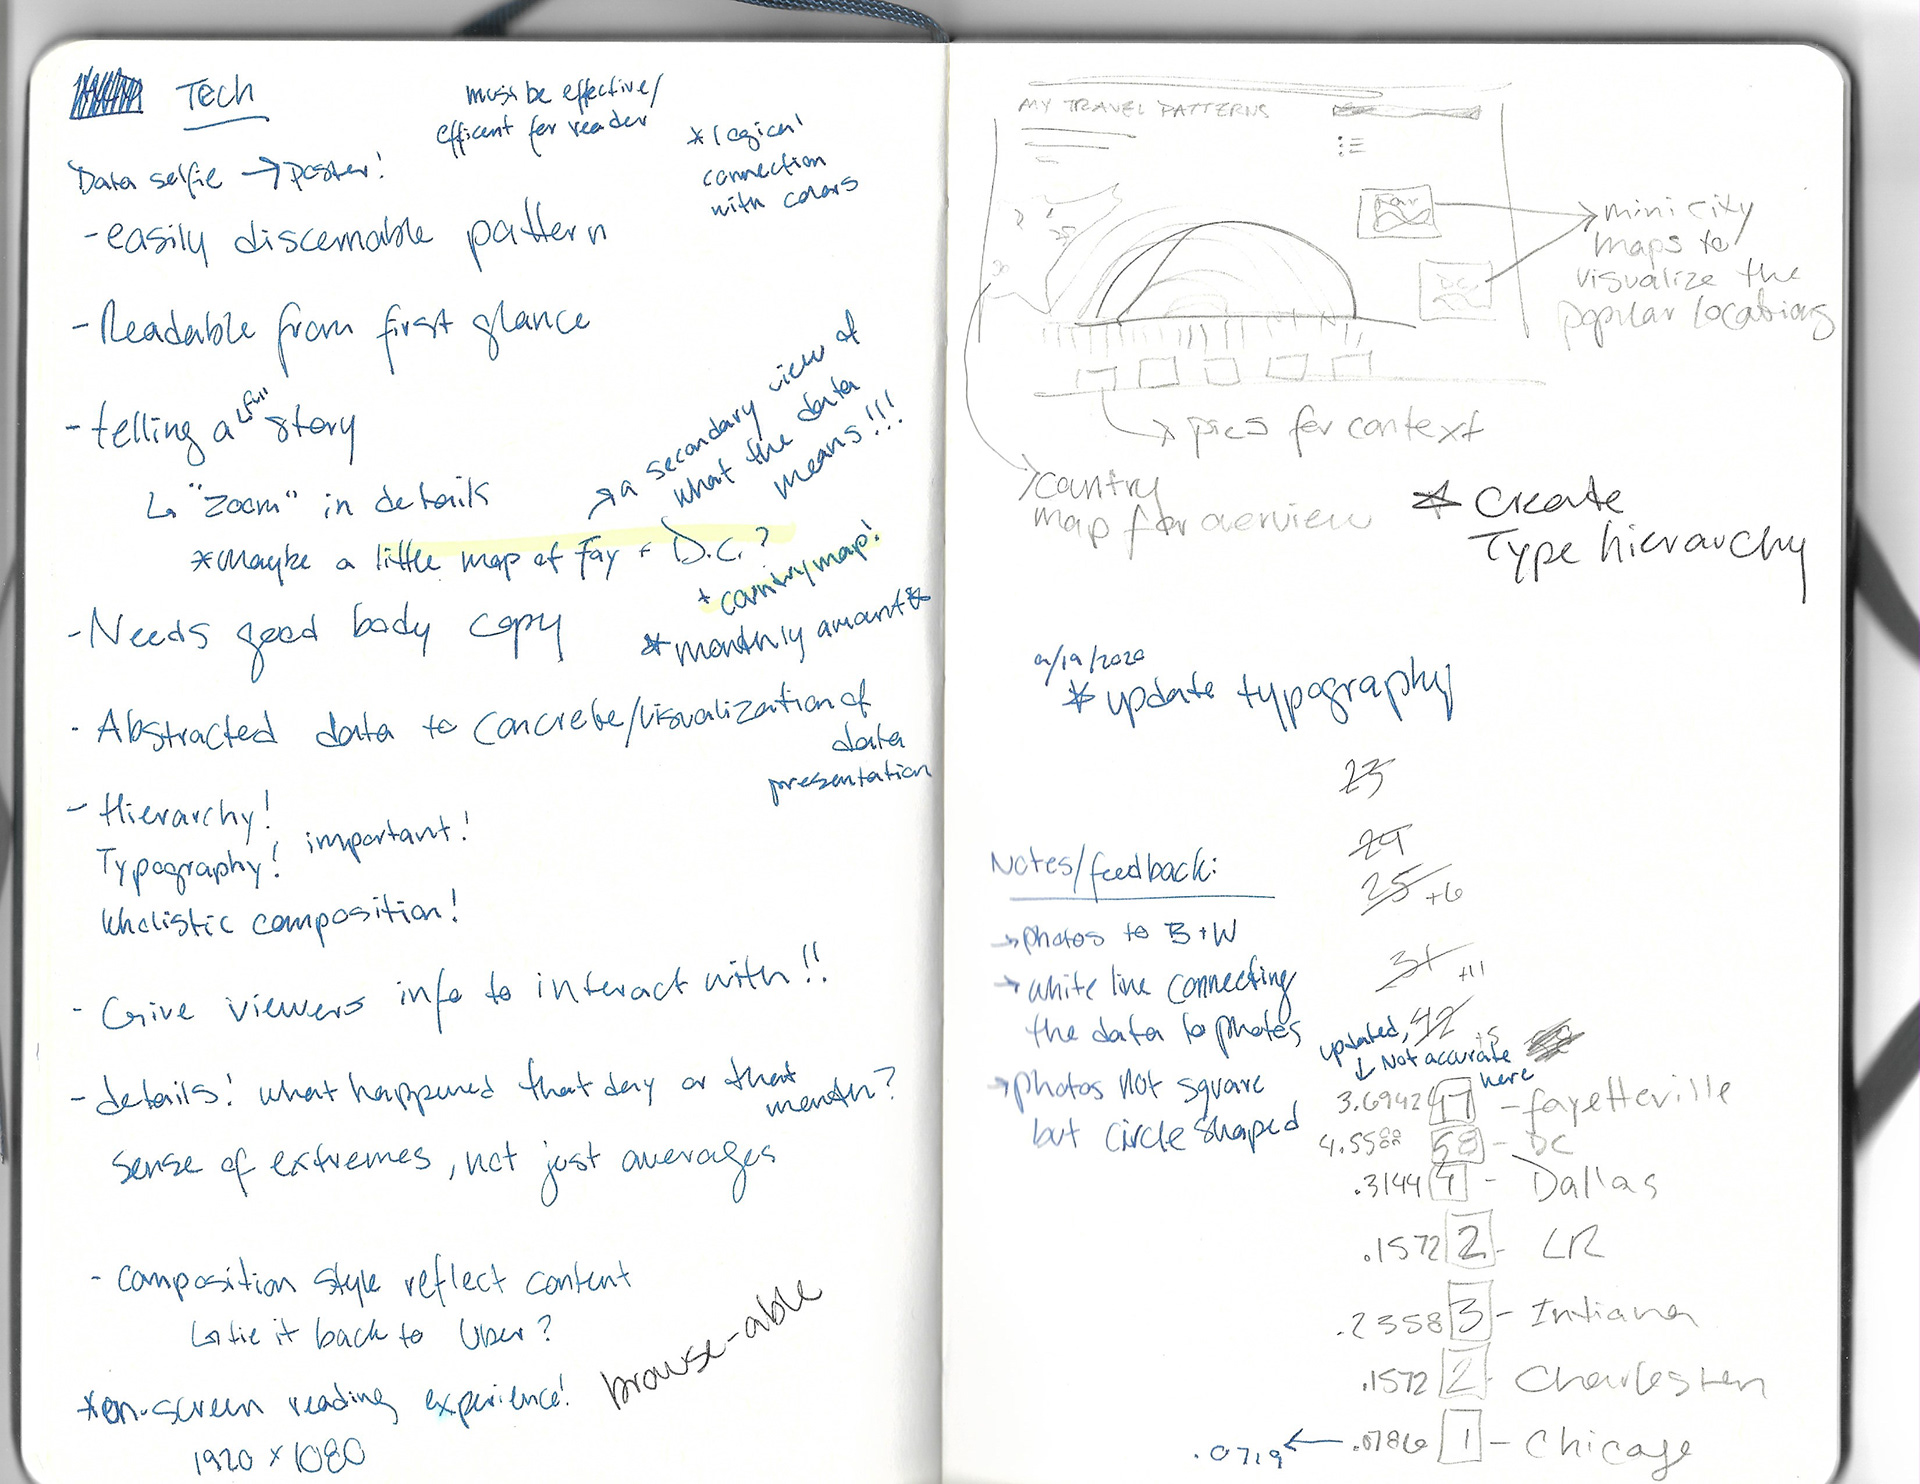 Tech
must be effective/
efficent for reader
*logical
connection
with colors
Data selfie → poster!
- easily discernable pattern
- Readable from first glance
- telling a full story
↳ "zoom" in details
→ a secondary view of
what the data
means!!!
* Maybe a little map of Fay + D.C.?
+ country map!
- Needs good body copy
* monthly amount *
- Abstracted data to concrete/visualization of
data
presentation
- Hierarchy!
Typography! important!
Wholistic composition!
- Give viewers info to interact with!!
- details! what happened that day or that
month?
sense of extremes, not just averages
- composition style reflect content
↳ tie it back to Uber?
browse-able
*on-screen reading experience!
1920 x 1080
MY TRAVEL PATTERNS
Fay
DC
mini city
maps to
visualize the
popular locations
→ pics for context
country
map for overview
* Create
Type hierarchy
/19/2020
* update typography
23
25 +6
+11
42
Notes/feedback:
→ photos to B+W
→ white line connecting
the data to photos
→ photos not square
but circle shaped
updated,
↓ Not accurate
here
3.6942 47 - fayetteville
4.5588 58 - DC
.3144 4 - Dallas
.1572 2 - LR
.2358 3 - Indiana
.1572 2 - Charleston
.0719 ← .0786 1 - Chicago